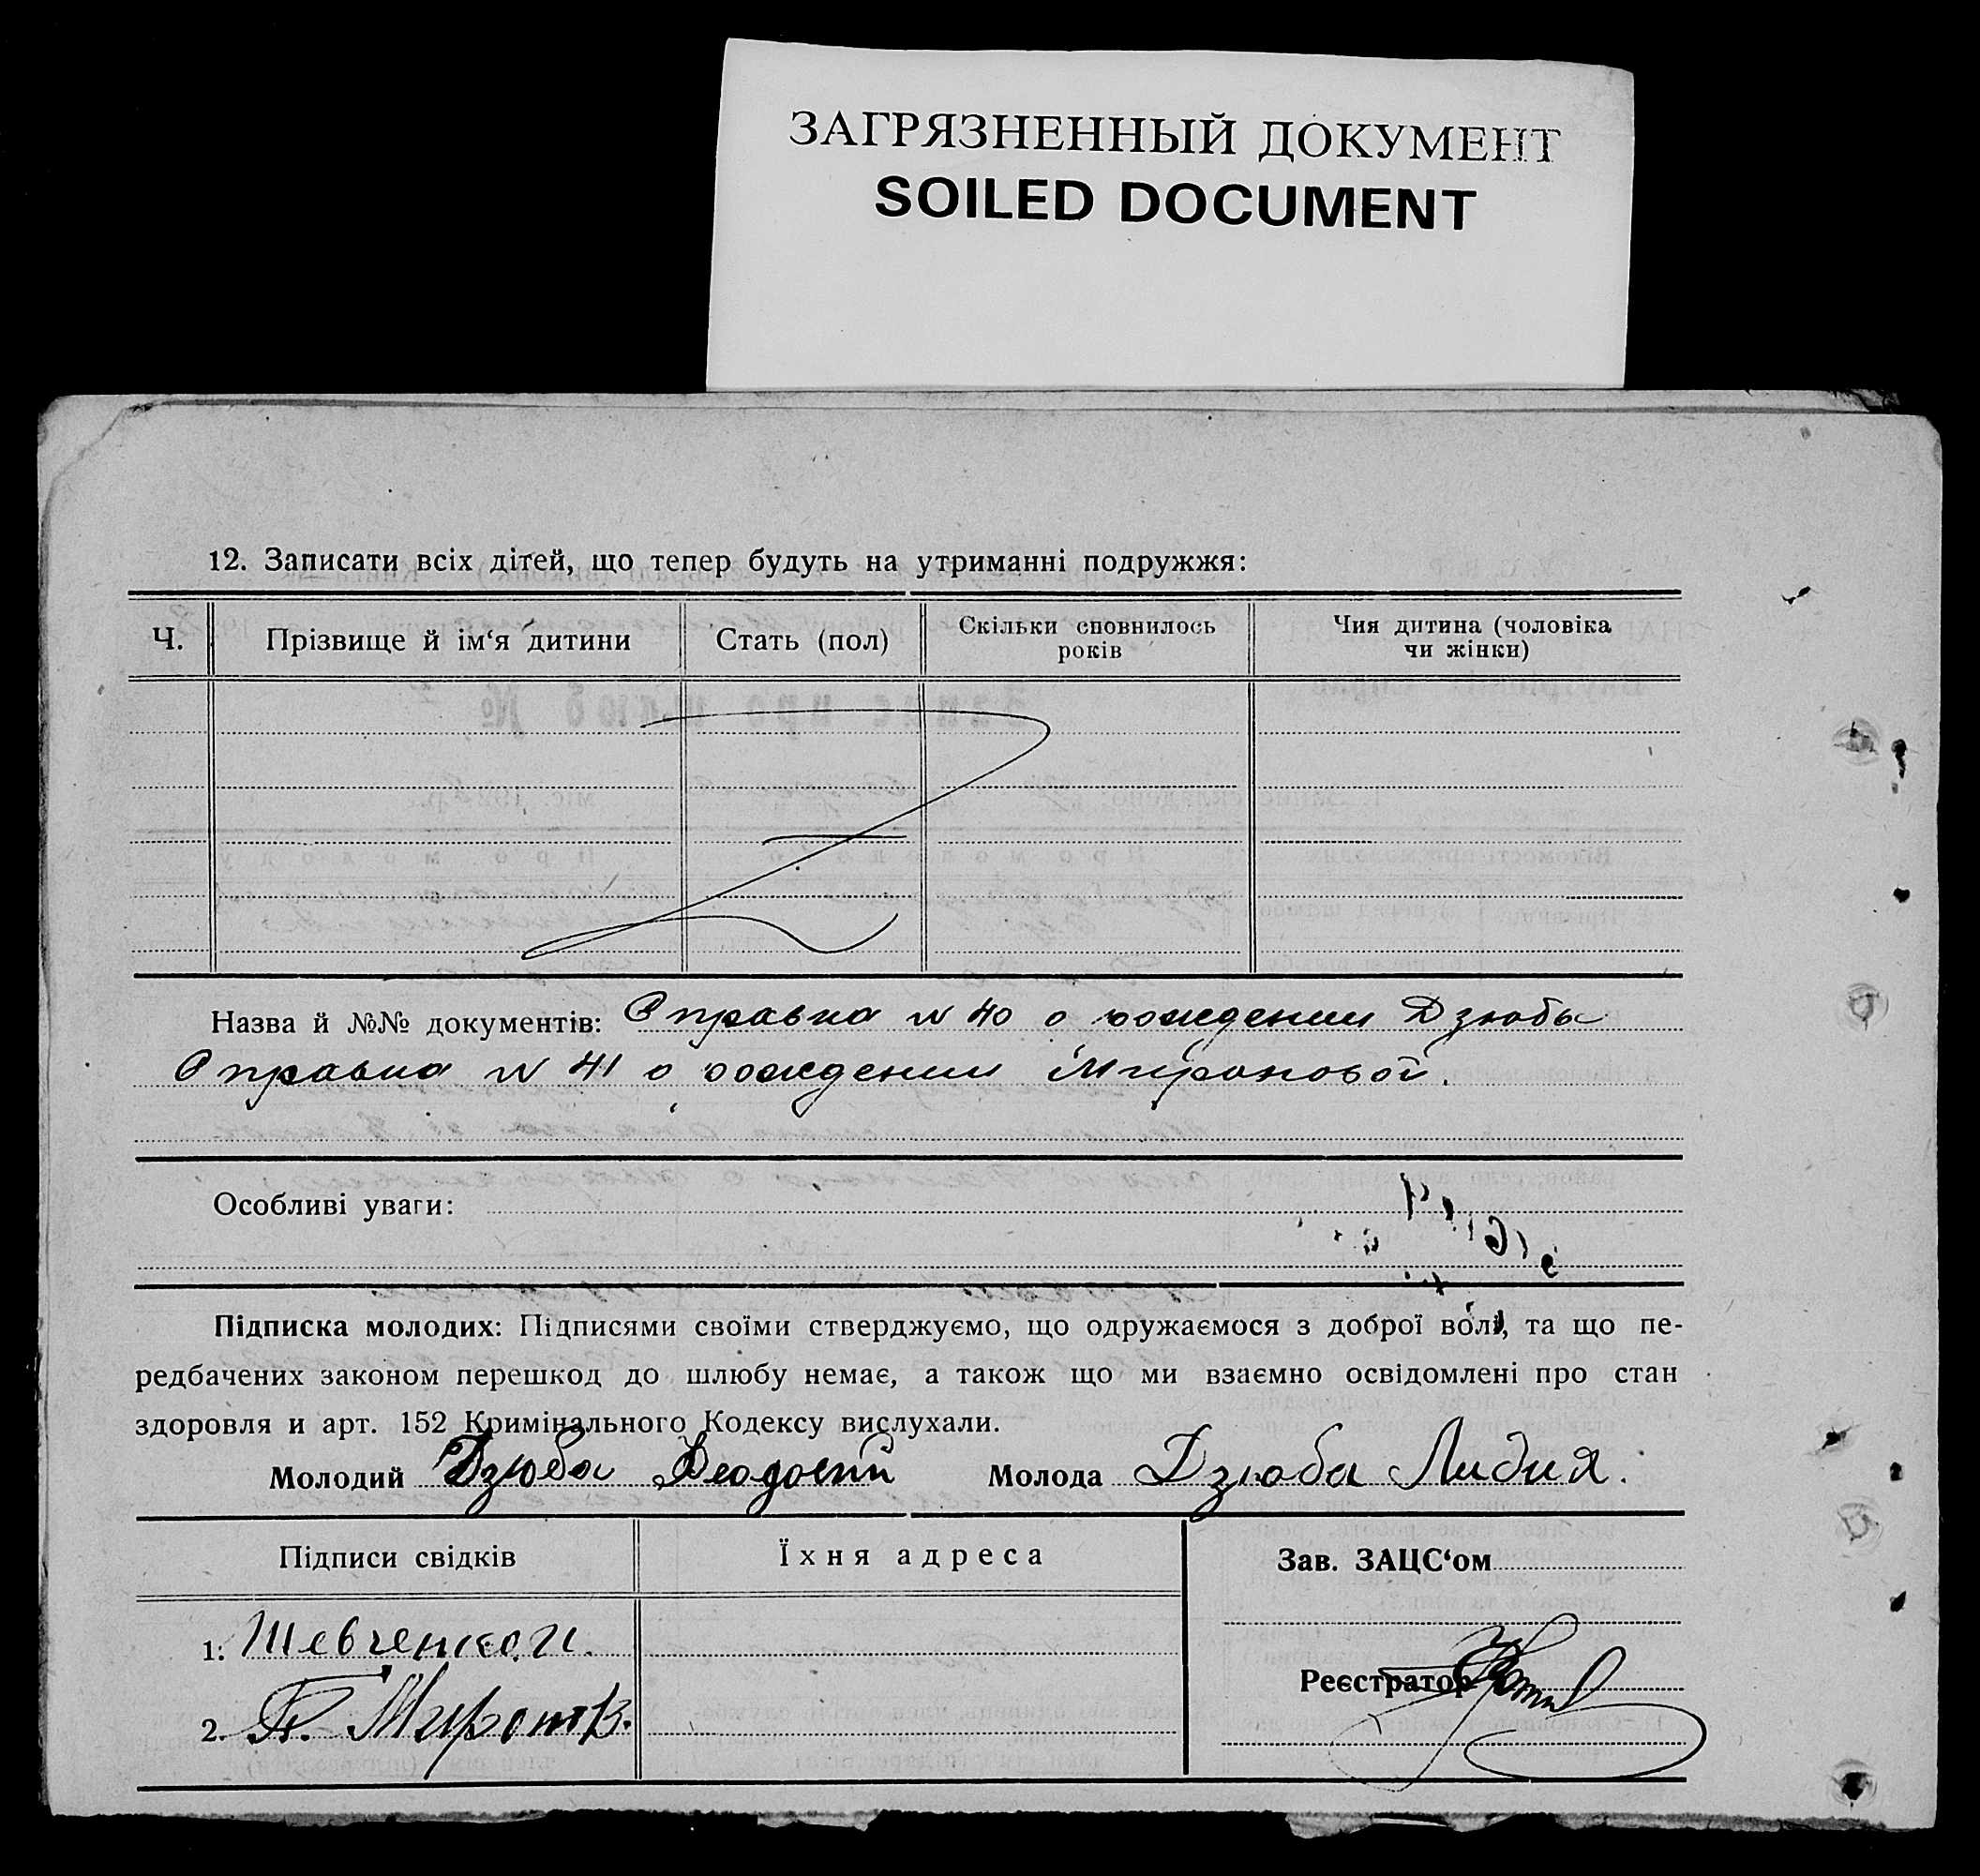 ЗАГРЯЗНЕННЫЙ ДОКУМЕНТ
SOILED DOCUMENT
12. Записати всіх дітей, що тепер будуть на утриманні подружжя:
Ч. Прізвище й ім‘я дитини Стать (пол) Скільки сповнилось років Чия дитина (чоловіка чи жінки)
Назва й №№ документів: Справка N 40 о рождении Дзюбы
Справка N 41 о рождении Мироновой.
Особливі уваги:
Підписка молодих: Підписями своїми стверджуємо, що одружаємося з доброї волі, та що пе-
редбачених законом перешкод до шлюбу немає, а також що ми взаємно освідомлені про стан
здоровля и арт. 152 Кримінального Кодексу вислухали.
Молодий Дзюба Феодосий Молода Дзюба Лидия.
Підписи свідків Їхня адреса Зав. ЗАЦС‘ом
1. Шевченко
Реєстратор
2. Миронов